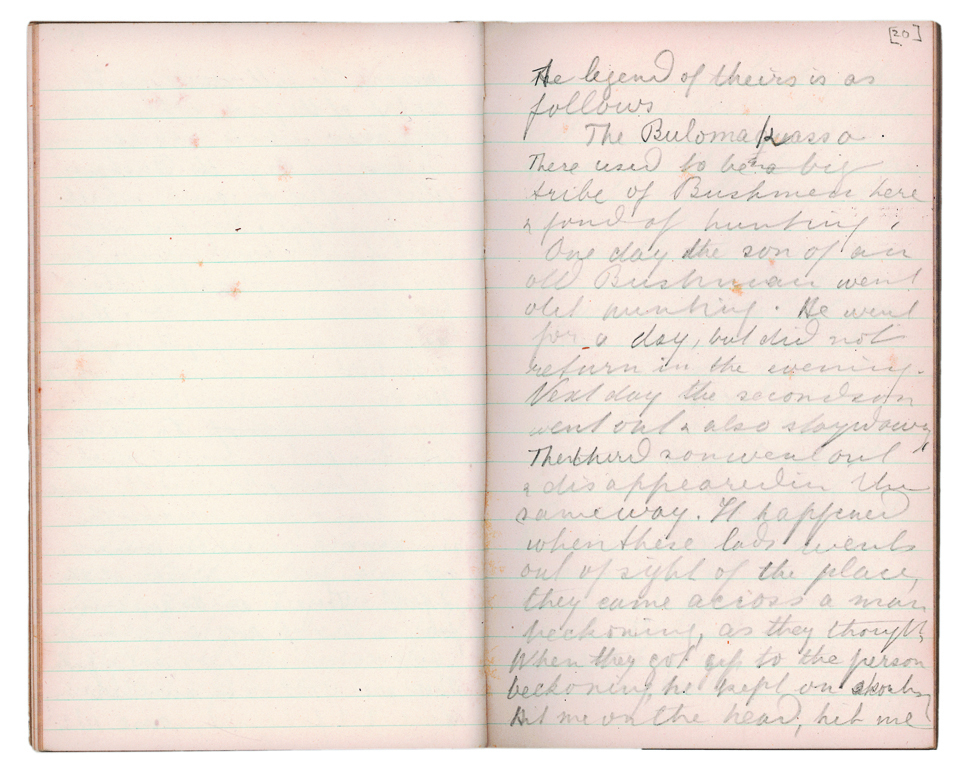 [20]
The legend of theirs is as
follows
The Bulomakwasso.
There used to be a big
tribe of Bushmen here
& fond of hunting,
One day the son of an
old Bushman went
out hunting. He went
for a day, but did not
return in the evening.
Next day the second son
went out & also stayed away
The third son went out
& disappeared in the
same way. It happened
when these lads went
out of sight of the place,
they came across a man
beckoning, as they thought,
When they got up to the person
beckoning, he kept on shouting
Hit me on the head, hit me